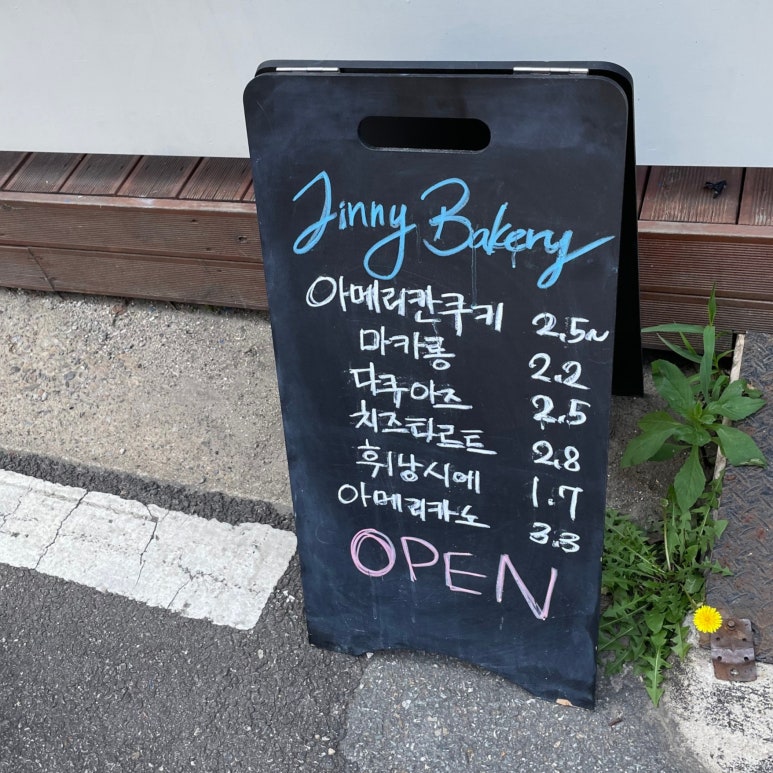 Jinny Bakery
아메리칸쿠키 2.5~
마카롱 2.2
다쿠아즈 2.5
치즈타르트 2.8
휘낭시에 1.7
아메리카노 3.3
OPEN